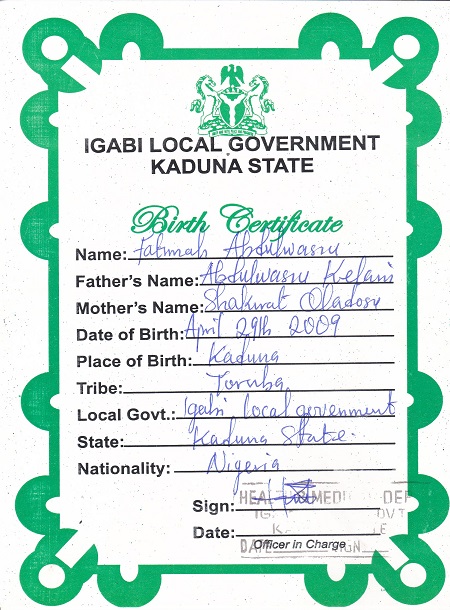 IGABI LOCAL GOVERNMENT
KADUNA STATE
Birth Certificate
Name: Fatimah Abdulwasiu
Father's Name: Abdulwasiu
Mother's Name: Shakirat Oladosu
Date of Birth: April 29th 2009
Place of Birth: Kaduna
Tribe: Yoruba
Local Govt.: Igabi local government
State: Kaduna State.
Nationality: Nigeria
Sign:
Date:
Officer in Charge